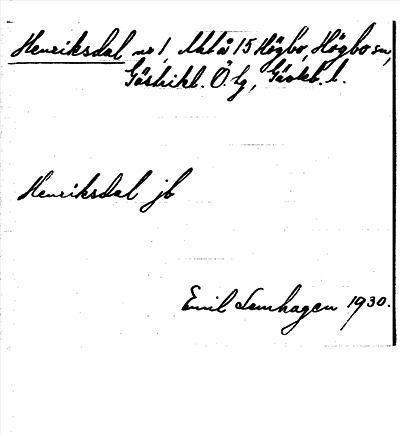 Henriksdal nr 1, Utl å 15 Högbo, Högbo sn,
Gästrikl. Ö. tg, Gävleb. l.
Henriksdal jb
Emil Lenhagen 1930.